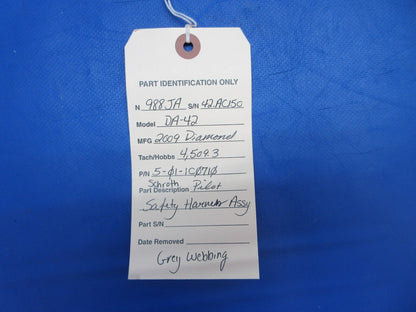 PART IDENTIFICATION ONLY
N 988JA S/N 42.AC150
Model DA-42
MFG 2009 Diamond
Tach/Hobbs 4,509.3
P/N 5-Ø1-1CØ71Ø
Schroth
Part Description Pilot
Safety Harness Assy
Part S/N
Date Removed
Grey Webbing